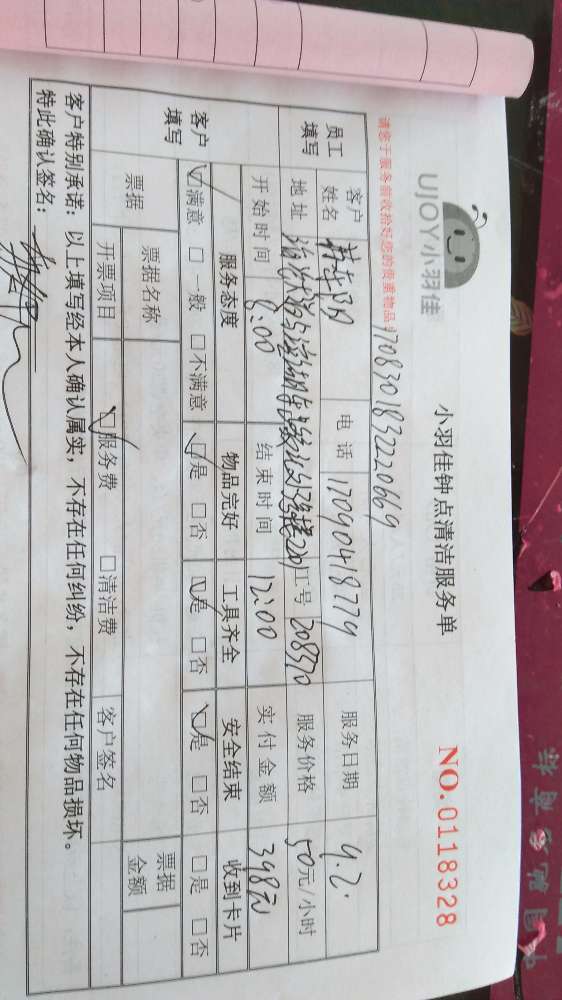 UJOY小羽佳
小羽佳钟点清洁服务单
NO.0118328
请您于服务前收拾好您的贵重物品!
1708301832220669
员工填写
客户姓名
电话 17090418779
服务日期 9.2.
地址
工号 208570
服务价格 50元/小时
开始时间 8:00
结束时间 12:00
实付金额 398元
客户填写
服务态度 物品完好 工具齐全 安全结束 收到卡片
☑满意 □一般 □不满意 ☑是 □否 ☑是 □否 ☑是 □否 □是 □否
票据
票据名称
票据金额
开票项目 ☑服务费 □清洁费 客户签名
客户特别承诺：以上填写经本人确认属实，不存在任何纠纷，不存在任何物品损坏。
特此确认签名：